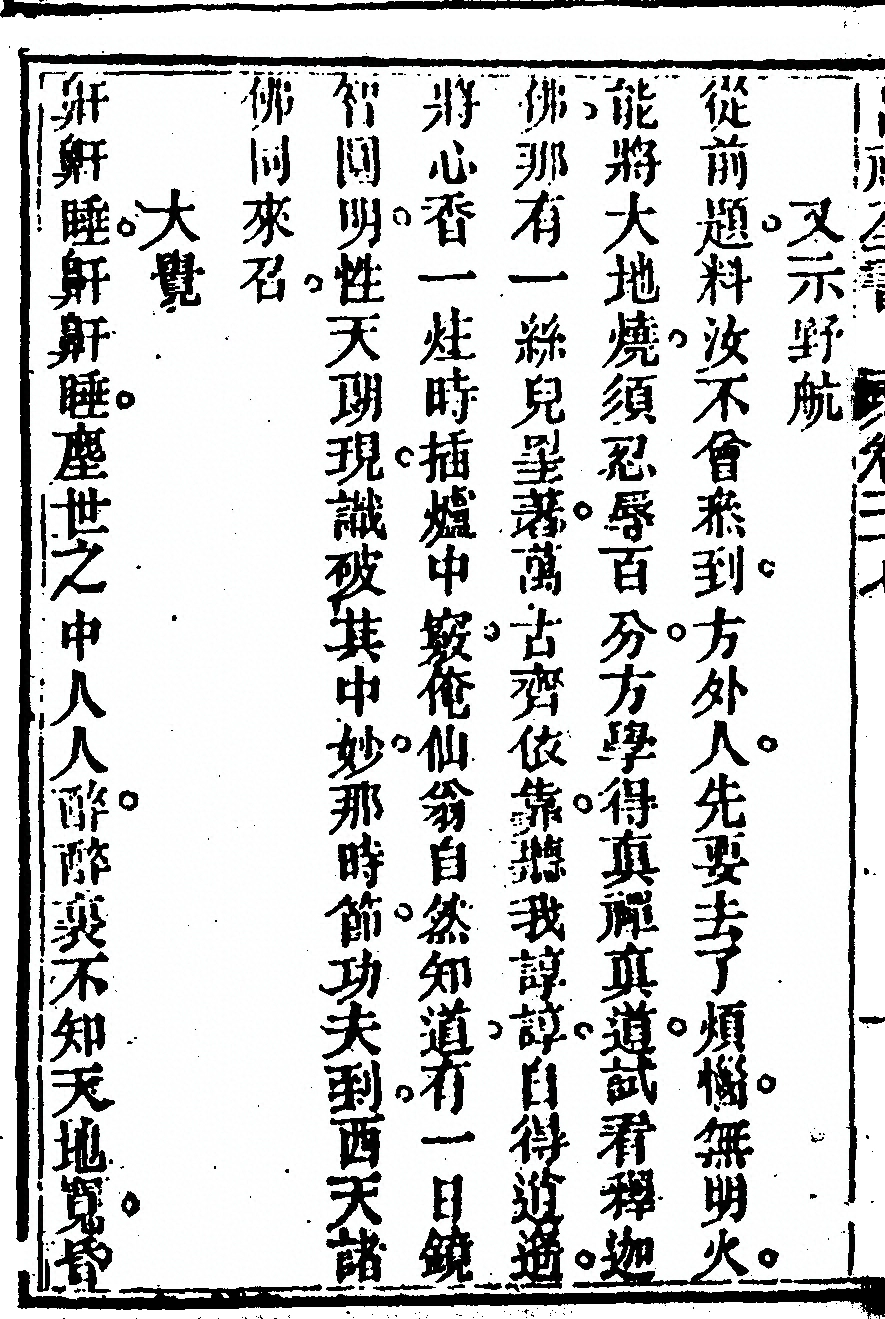 又示野航
從前題料汝不曾叅到方外人先要去了煩惱無明火
能將大地燒須忍辱百分方學得真禪真道試看釋迦
佛那有一絲兒罣礙萬古齊依靠聽我諄諄自得逍遙
將心香一炷時插爐中竅俺仙翁自然知道有一日鏡
智圓明性天朗現識破其中妙那時節功夫到西天諸
佛同來召
大覺
鼾鼾睡鼾鼾睡塵世之中人人醉醉裏不知天地寬昏